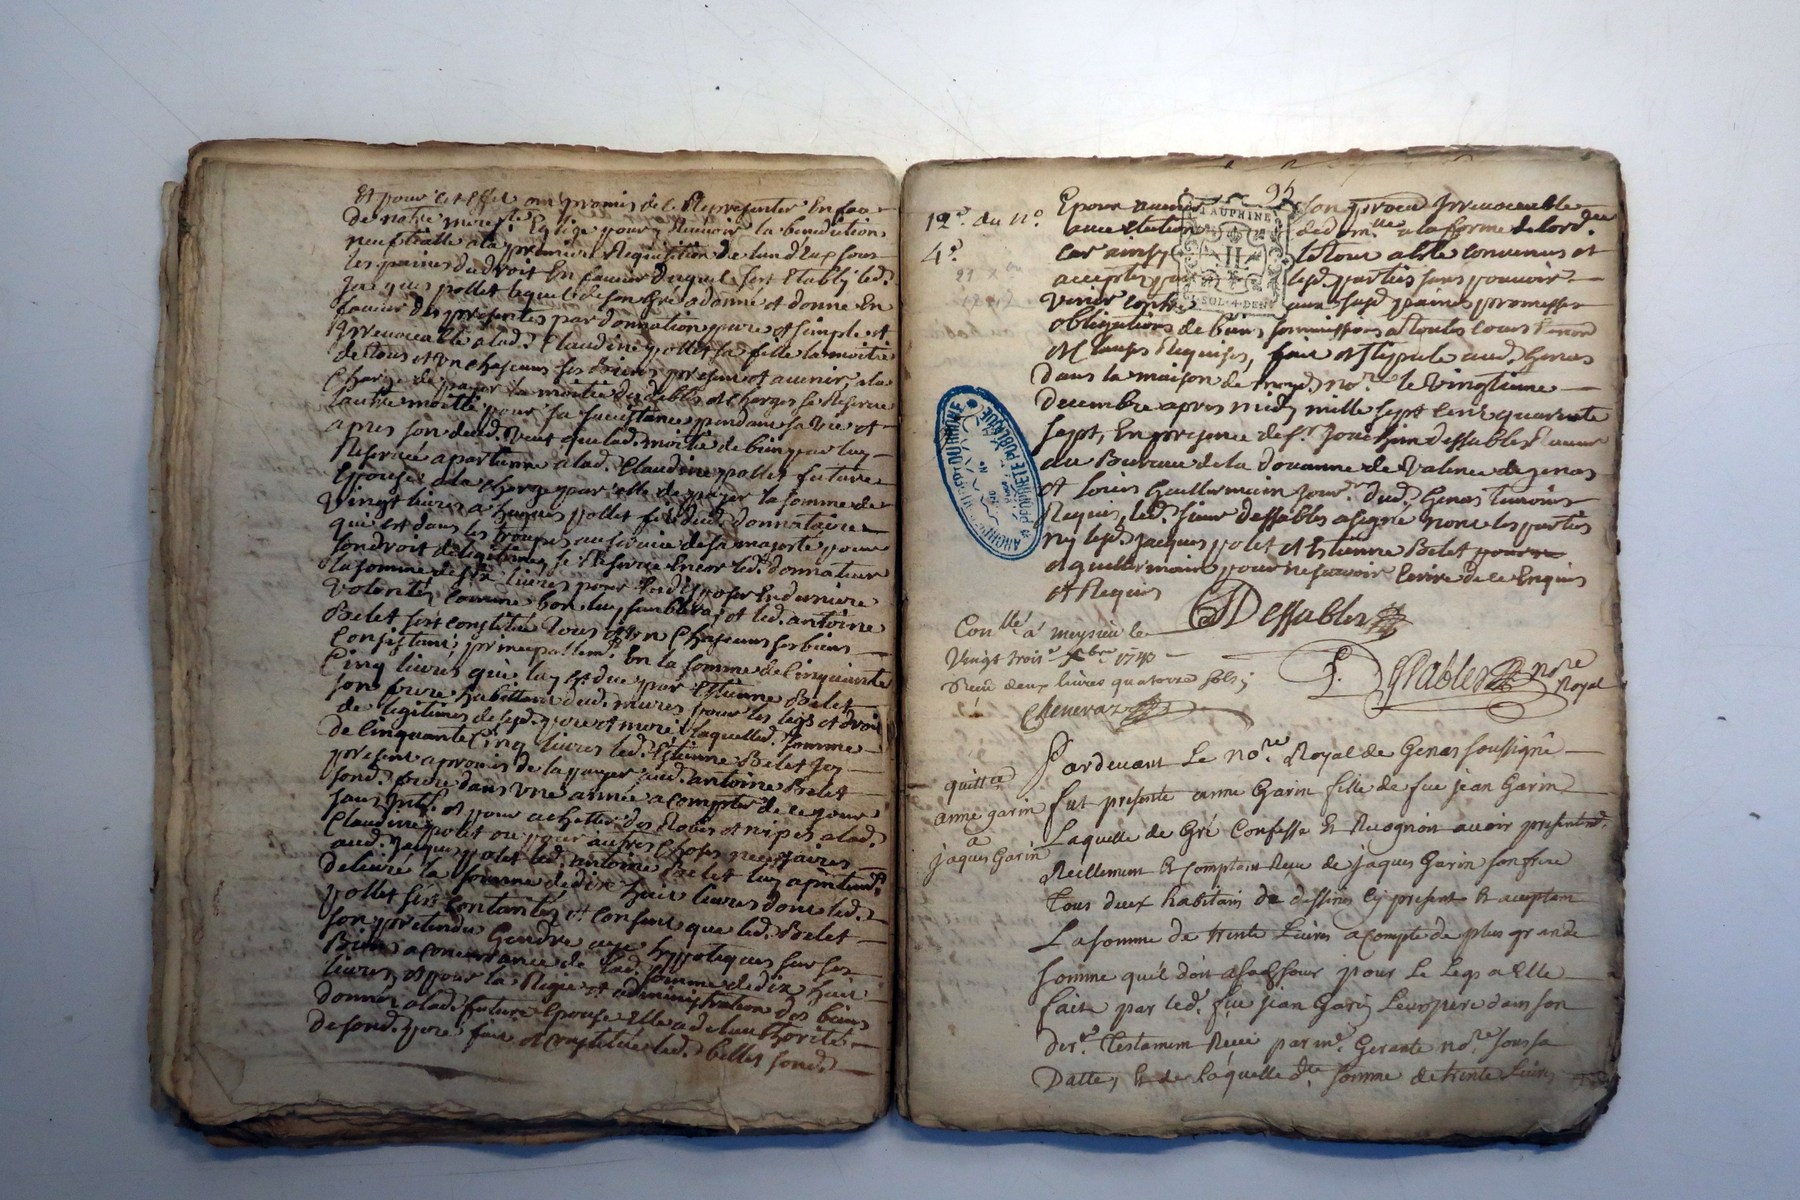 Et pour cet effet ont promis de se Representer En face
de notre mere ste Eglise pour y Recevoir la benediction
nuptialle a la premiere Requisition de lun d'Eux sous
les peines du droit En faveur duquel s'est Etably led.
jacques pollet lequel de son gré a donné et donne En
faveur des presentes par donnation pure et simple et
irrevocable a lad. Claudine pollet sa fille la moitié
de tous et un chascuns ses Biens present et avenir, a la
charge de payer la moitié des debtes et charges se Reserve
l'autre moitié pour sa subsistance pendant sa vie et
apres son deced. veut que lad. moitié de bien par luy
Reservée apartienne a lad. Claudine pollet future
Epouse a la charge par elle de payer la somme de
vingt livres a pollet fils dud. donnataire
qui est dans les trouppes au service de sa majesté pour
son droit de legitime, se Reserve Encor led. donnateur
la somme de six livres pour En disposer En derniere
volonté, comme bon luy semblera, et led. antoine
Belet s'est constitué tous et un chascuns ses biens
consistant, principallemt. En la somme de Cinquante
Cinq livres qui luy est due par Estienne Belet
son frere habittant dud. mures pour les legs et droit
de legitimes de sesd. pere et mere, laquelled. somme
de Cinquante Cinq livres led. Estienne Belet Icy
present a promis de la payer aud. antoine Belet
sond. frere dans une année a compter de ce jour
sans intt. et pour achetter des Robes et nipes a lad.
Claudine polet ou pour autres choses necessaires
aud. Jacques polet led. antoine Belet luy a
delivré la somme de dix huit livres dont led.
pollet s'est contanté, et consent que led. Belet
son pretendu Gendre aye hypoteques sur ses
Biens a concurrance de lad. somme de dix huit
livres, et pour la Regie et administration des biens
donnés a lad. future Epouse Elle a de l'authorité
de sond. pere fait et constitué led. bellet sond.
95
12s. du no.
4s.
Epoux avenir son proceu Irrevocable
avec Election de dom.lle a la forme de l'ord.ce
car ainsy le tout a été convenu et
accepté par lesd. parties sans pouvoir
venir contre aux susd. peines promesses
obligations de biens soumissions a toutes cours
et clauses Requises, fait et stipulé aud. Genas
dans la maison de moyd. nore. le vingtieme
decembre apres midy mille sept cent quarante
sept, En presence de sr. Joachim dessables
au Bureau de la douanne de valence de genas
et Louis Guillermain jour.r dud. Genas temoins
Requis, led. sieur dessables a signé non les parties
ny lesd. Jacques polet et Estienne Belet
et guillermain pour ne sçavoir Ecrire de ce Enquis
et Requis
Dessables
Conllé a meysieu le
vingt trois xbre 1747
Reçu deux livres quatorze sols
Chenevaz
Dessables nore
Royal
DAUPHINE
H
SOL. 4. DEN
ARCHIVES DEP. DU RHONE
PROPRIETE PUBLIQUE
quittce
anne garin
a
jaques Garin
Pardevant Le nore. Royal de Genas soussigné
fut presente anne Garin fille de feu jean Garin
Laquelle de Gré Confesse & Recognoit avoir presentemt.
Reellement & Comptant Receu de jaques Garin son frere
Tous deux habitans de Cy present & aceptant
La somme de trente Livres a Compte de plus grande
somme quil doit a sad. seur pour Le Legs a Elle
fait par led. feu jean Garin Leur pere dans son
der. Testament Receu par me. Gerante nore. sous sa
Datte, & de Laquelle dte. somme de trente Livres